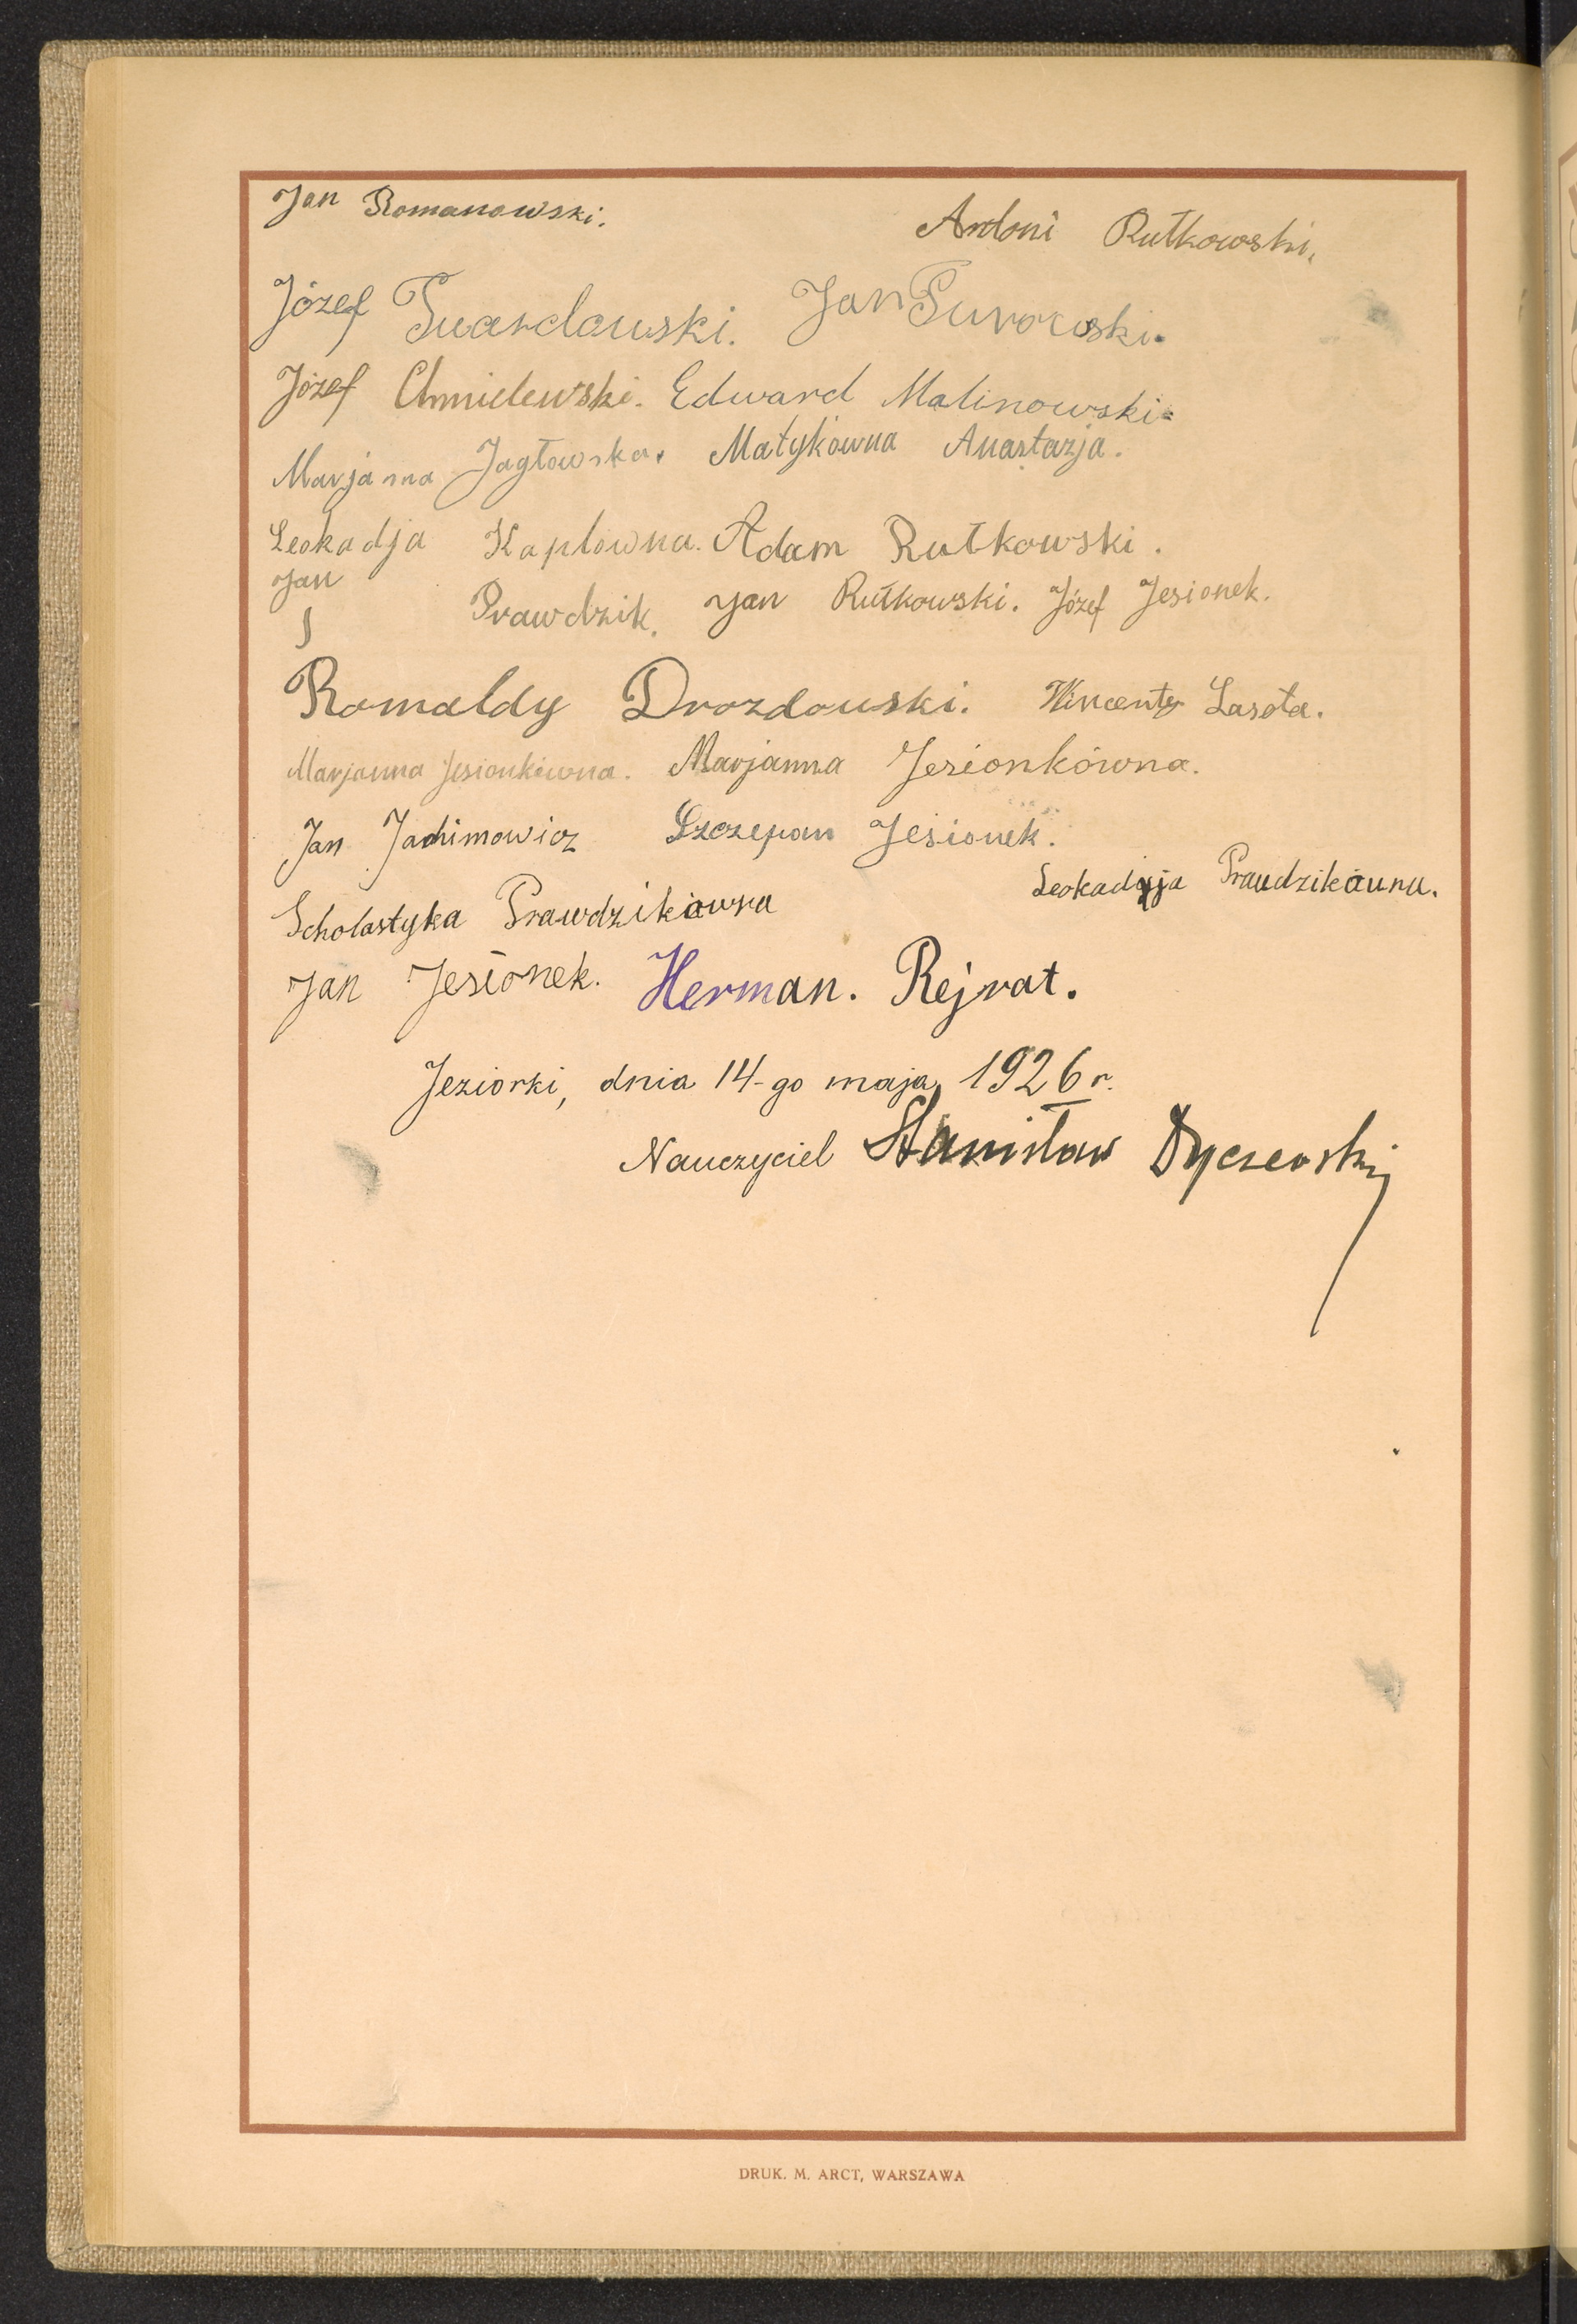 Jan Romanowski. Antoni Rutkowski.
Józef Twardowski. Jan Turowski.
Józef Chmielewski. Edward Malinowski.
Marjanna Jagłowska. Matykówna Anastazja.
Leokadja Kaplówna. Adam Rutkowski.
Jan Prawdzik. Jan Rutkowski. Józef Jesionek.
Romaldy Drozdowski. Wincenty Lasota.
Marjanna Jesionkówna. Marjanna Jesionkówna.
Jan Jachimowicz Szczepan Jesionek.
Scholastyka Prawdzikówna Leokadja Prawdzikówna.
Jan Jesionek. Herman. Rejrat.
Jeziorki, dnia 14-go maja 1926 r.
Nauczyciel Stanisław Dyczewski
DRUK. M. ARCT, WARSZAWA